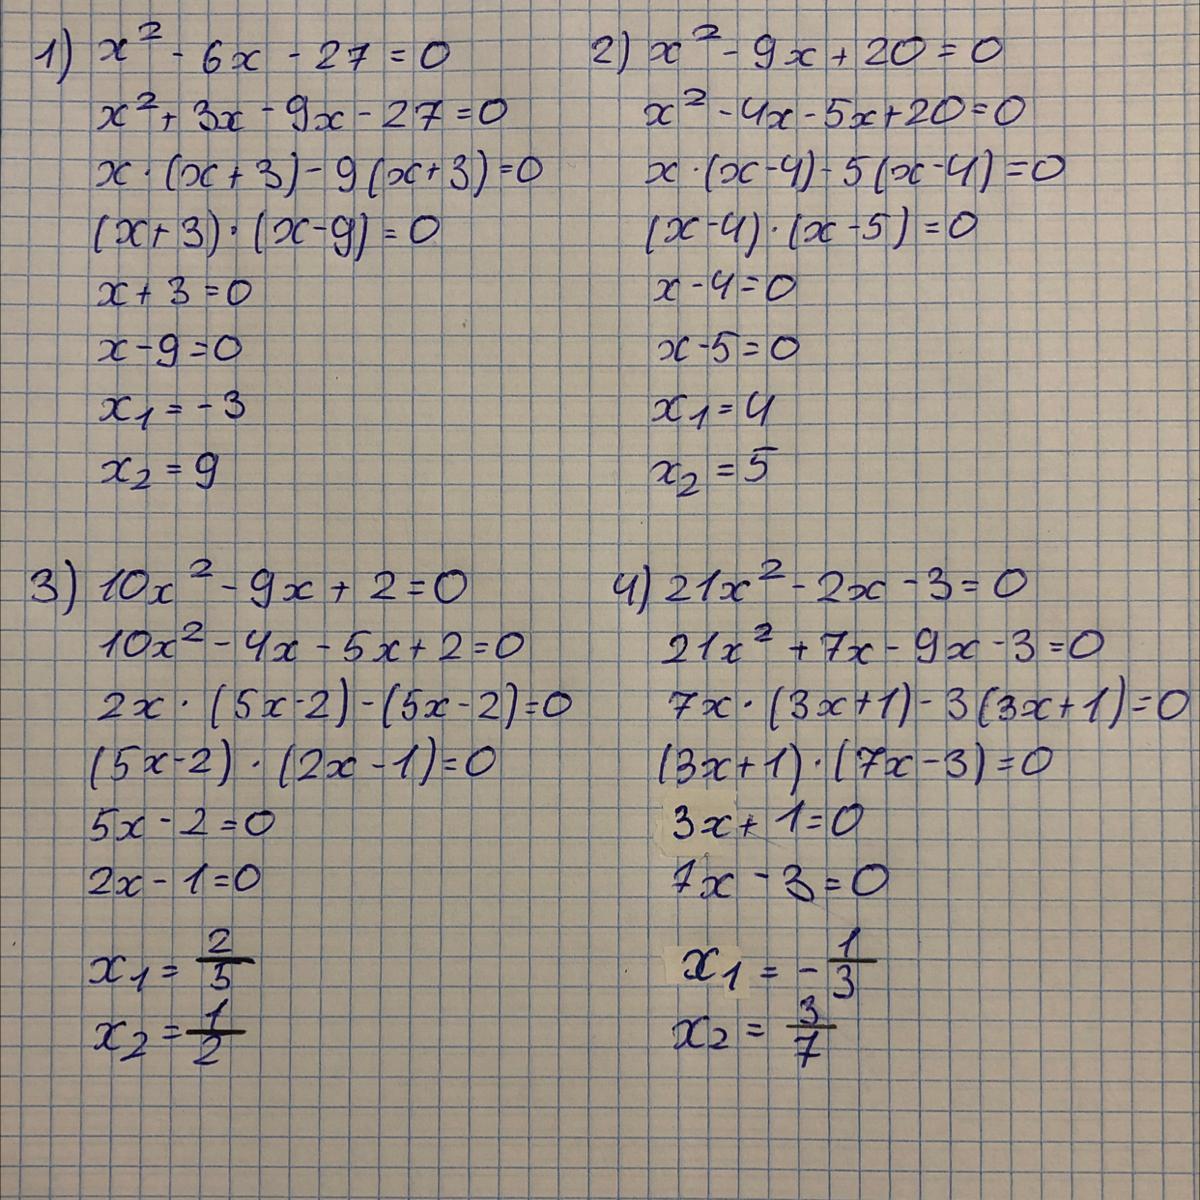 1) x² - 6x - 27 = 0
x² + 3x - 9x - 27 = 0
x · (x + 3) - 9(x + 3) = 0
(x + 3) · (x - 9) = 0
x + 3 = 0
x - 9 = 0
x₁ = - 3
x₂ = 9
2) x² - 9x + 20 = 0
x² - 4x - 5x + 20 = 0
x · (x - 4) - 5(x - 4) = 0
(x - 4) · (x - 5) = 0
x - 4 = 0
x - 5 = 0
x₁ = 4
x₂ = 5
3) 10x² - 9x + 2 = 0
10x² - 4x - 5x + 2 = 0
2x · (5x - 2) - (5x - 2) = 0
(5x - 2) · (2x - 1) = 0
5x - 2 = 0
2x - 1 = 0
x₁ = 2/5
x₂ = 1/2
4) 21x² - 2x - 3 = 0
21x² + 7x - 9x - 3 = 0
7x · (3x + 1) - 3(3x + 1) = 0
(3x + 1) · (7x - 3) = 0
3x + 1 = 0
7x - 3 = 0
x₁ = - 1/3
x₂ = 3/7